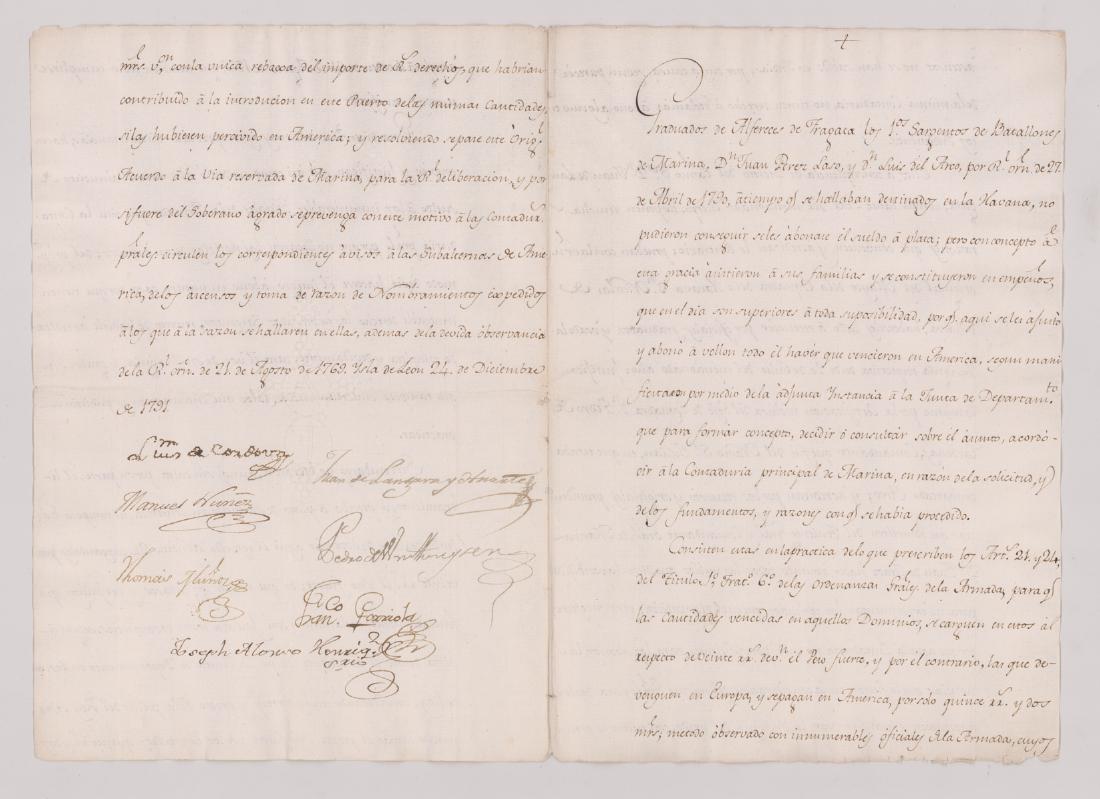 mrs. v.n con la unica rebaxa del importe de R.s derechos, que habrian
contribuido â la introducion en este Puerto de las mismas Cantidades,
si las hubiesen percivido en America; y resolviendo se pase este Orig.l
Acuerdo â la Via reservada de Marina, para la R.l deliberacion, y por
si fuere del Soberano agrado se prevenga con este motivo â las Contadur.s
prâles. circulen los correspondientes avisos â las Subalternas de Ame-
rica, de los ascensos y toma de razon de Nombramientos expedidos
â los que â la razon se hallaren en ellas, ademas de la devida observancia
de la R.l orñ. de 21. de Agosto de 1769. Ysla de Leon 24. de Diciembre
de 1791.
Luis de Cordova
Juan de Langara y Huarte
Manuel Nuñez
Pedro de Winthuysen
Thomas Muñoz
Fran.co
Joseph Alonso Henriq.z
S.rio
+
Graduados de Alfereces de Fragata los 1.os Sargentos de Batallones
de Marina, D.n Juan Perez Laso, y D.n Luis del Arco, por R.l orñ. de 27.
de Abril de 1790, â tiempo q.e se hallaban destinados en la Havana, no
pudieron conseguir se les abonase el sueldo â plata; pero con concepto â
esta gracia asistieron â sus familias y se constituyeron en empeños,
que en el dia son superiores â toda su posibilidad, por q.e aqui se les ajustó
y abonó â vellon todo el haver que vencieron en America, segun mani
fiestaron por medio de la adjunta Instancia â la Junta de Departam.to
que para formar concepto, decidir ô consultar sobre el asunto, acordó-
oir â la Contaduria principal de Marina, en razon de la solicitud, y
de los fundamentos, y razones con q.e se habia procedido.
Consisten estas en la practica de lo que prescriben los Art.s 21. y 24.
del Titulo 1.o Trat.o 6.o de las Ordenanzas Grâles. de la Armada, para q.e
las Cantidades vencidas en aquellos Dominios, se carguen en estos al
respecto de veinte rr.s de v.n el Peso fuerte, y por el contrario, las que de-
venguen en Europa, y se pagan en America, por solo quince rr.s y dos
mrs; metodo observado con innumerables oficiales de la Armada, cuyos